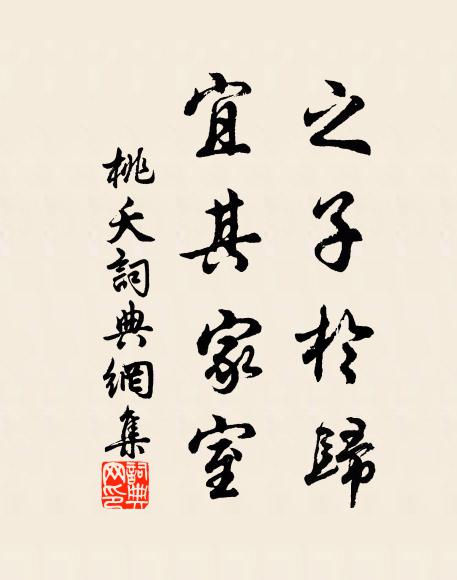 之子於歸
宜其家室
桃夭詞典網集
詞典
网印